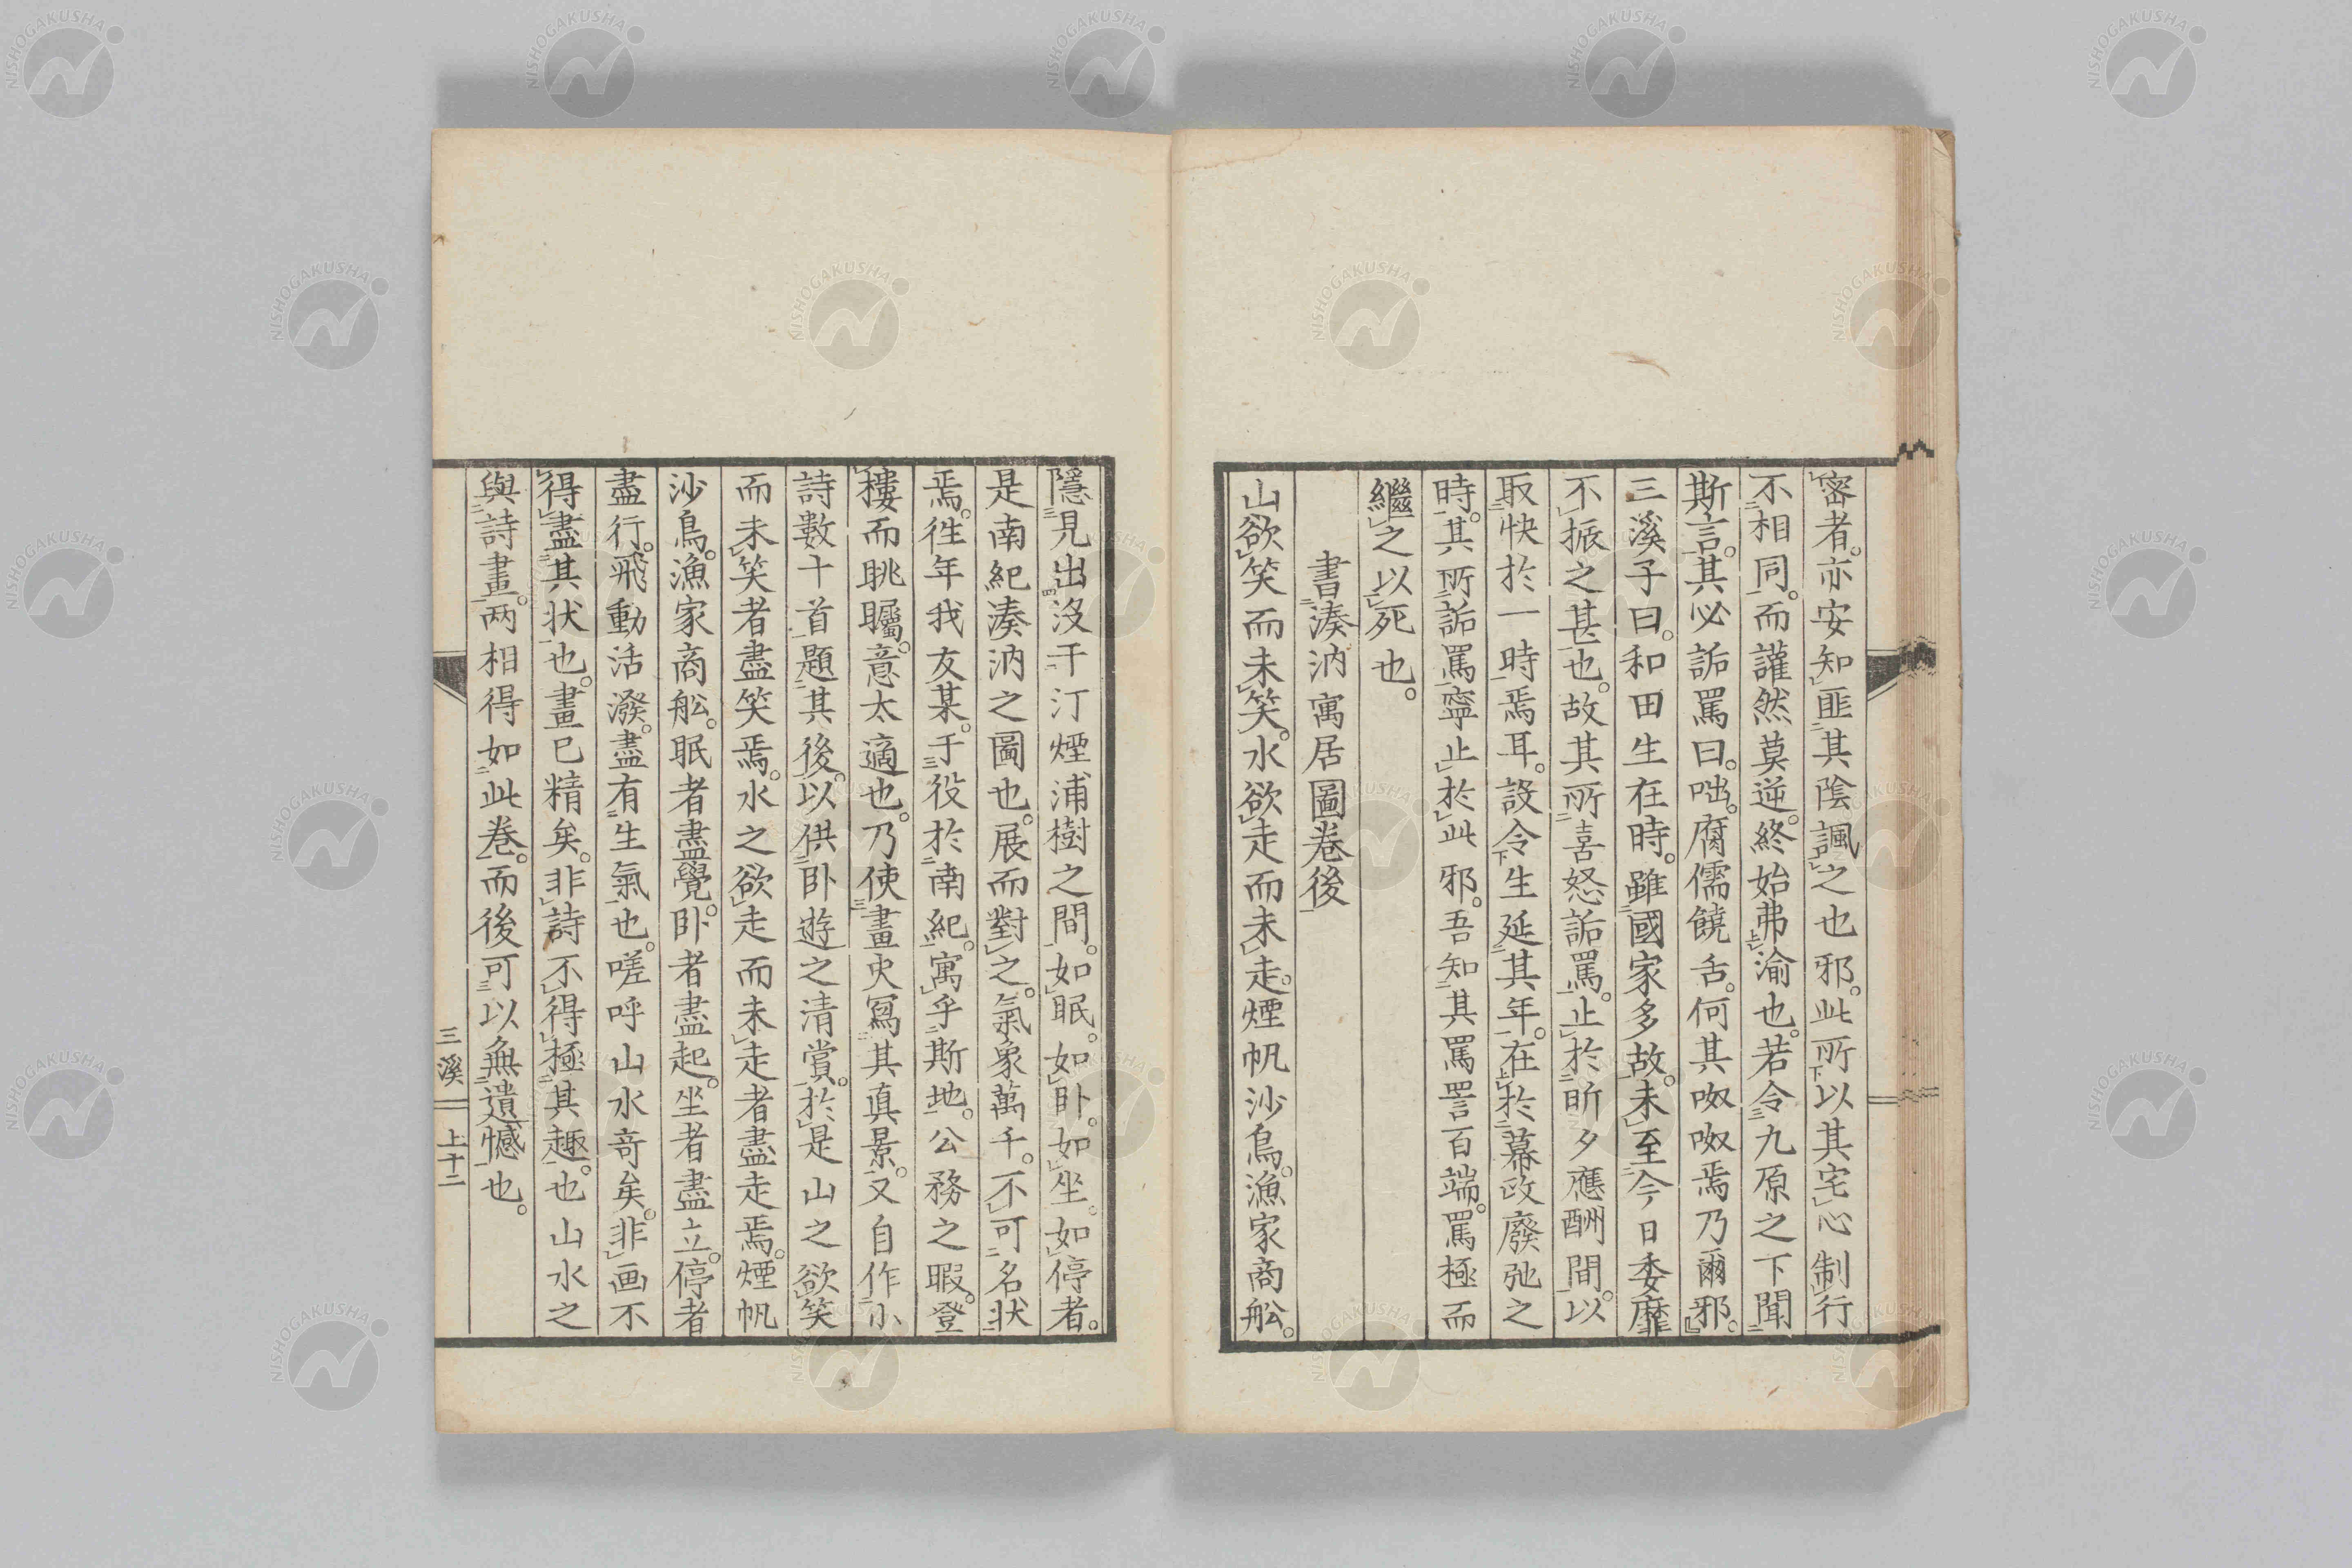 密者。亦安知匪其陰諷之也邪。此所以其宅心制行
不相同。而讙然莫逆。終始弗渝也。若令九原之下聞
斯言。其必詬罵曰。咄。腐儒饒舌。何其呶呶焉乃爾邪。
三溪子曰。和田生在時。雖國家多故。未至今日委靡
不振之甚也。故其所喜怒詬罵。止於昕夕應酬間。以
取快於一時焉耳。設令生延其年。在於幕政廢弛之
時。其所詬罵寧止於此邪。吾知其罵詈百端。罵極而
繼之以死也。
書湊汭寓居圖卷後
山欲笑而未笑。水欲走而未走。煙帆沙鳥。漁家商舩。
隱見出沒于汀煙浦樹之間。如眠。如臥。如坐。如停者。
是南紀湊汭之圖也。展而對之。氣象萬千。不可名狀
焉。徃年我友某。于役於南紀。寓乎斯地。公務之暇。登
樓而眺矚。意太適也。乃使畫史寫其真景。又自作小
詩數十首題其後。以供臥遊之清賞。於是山之欲笑
而未笑者盡笑焉。水之欲走而未走者盡走焉。煙帆
沙鳥。漁家商舩。眠者盡覺。臥者盡起。坐者盡立。停者
盡行。飛動活潑。盡有生氣也。嗟呼山水竒矣。非画不
得盡其狀也。畫已精矣。非詩不得極其趣也。山水之
與詩畫。两相得如此卷。而後可以無遺憾也。
三溪 上十二
NISHOGAKUSHA